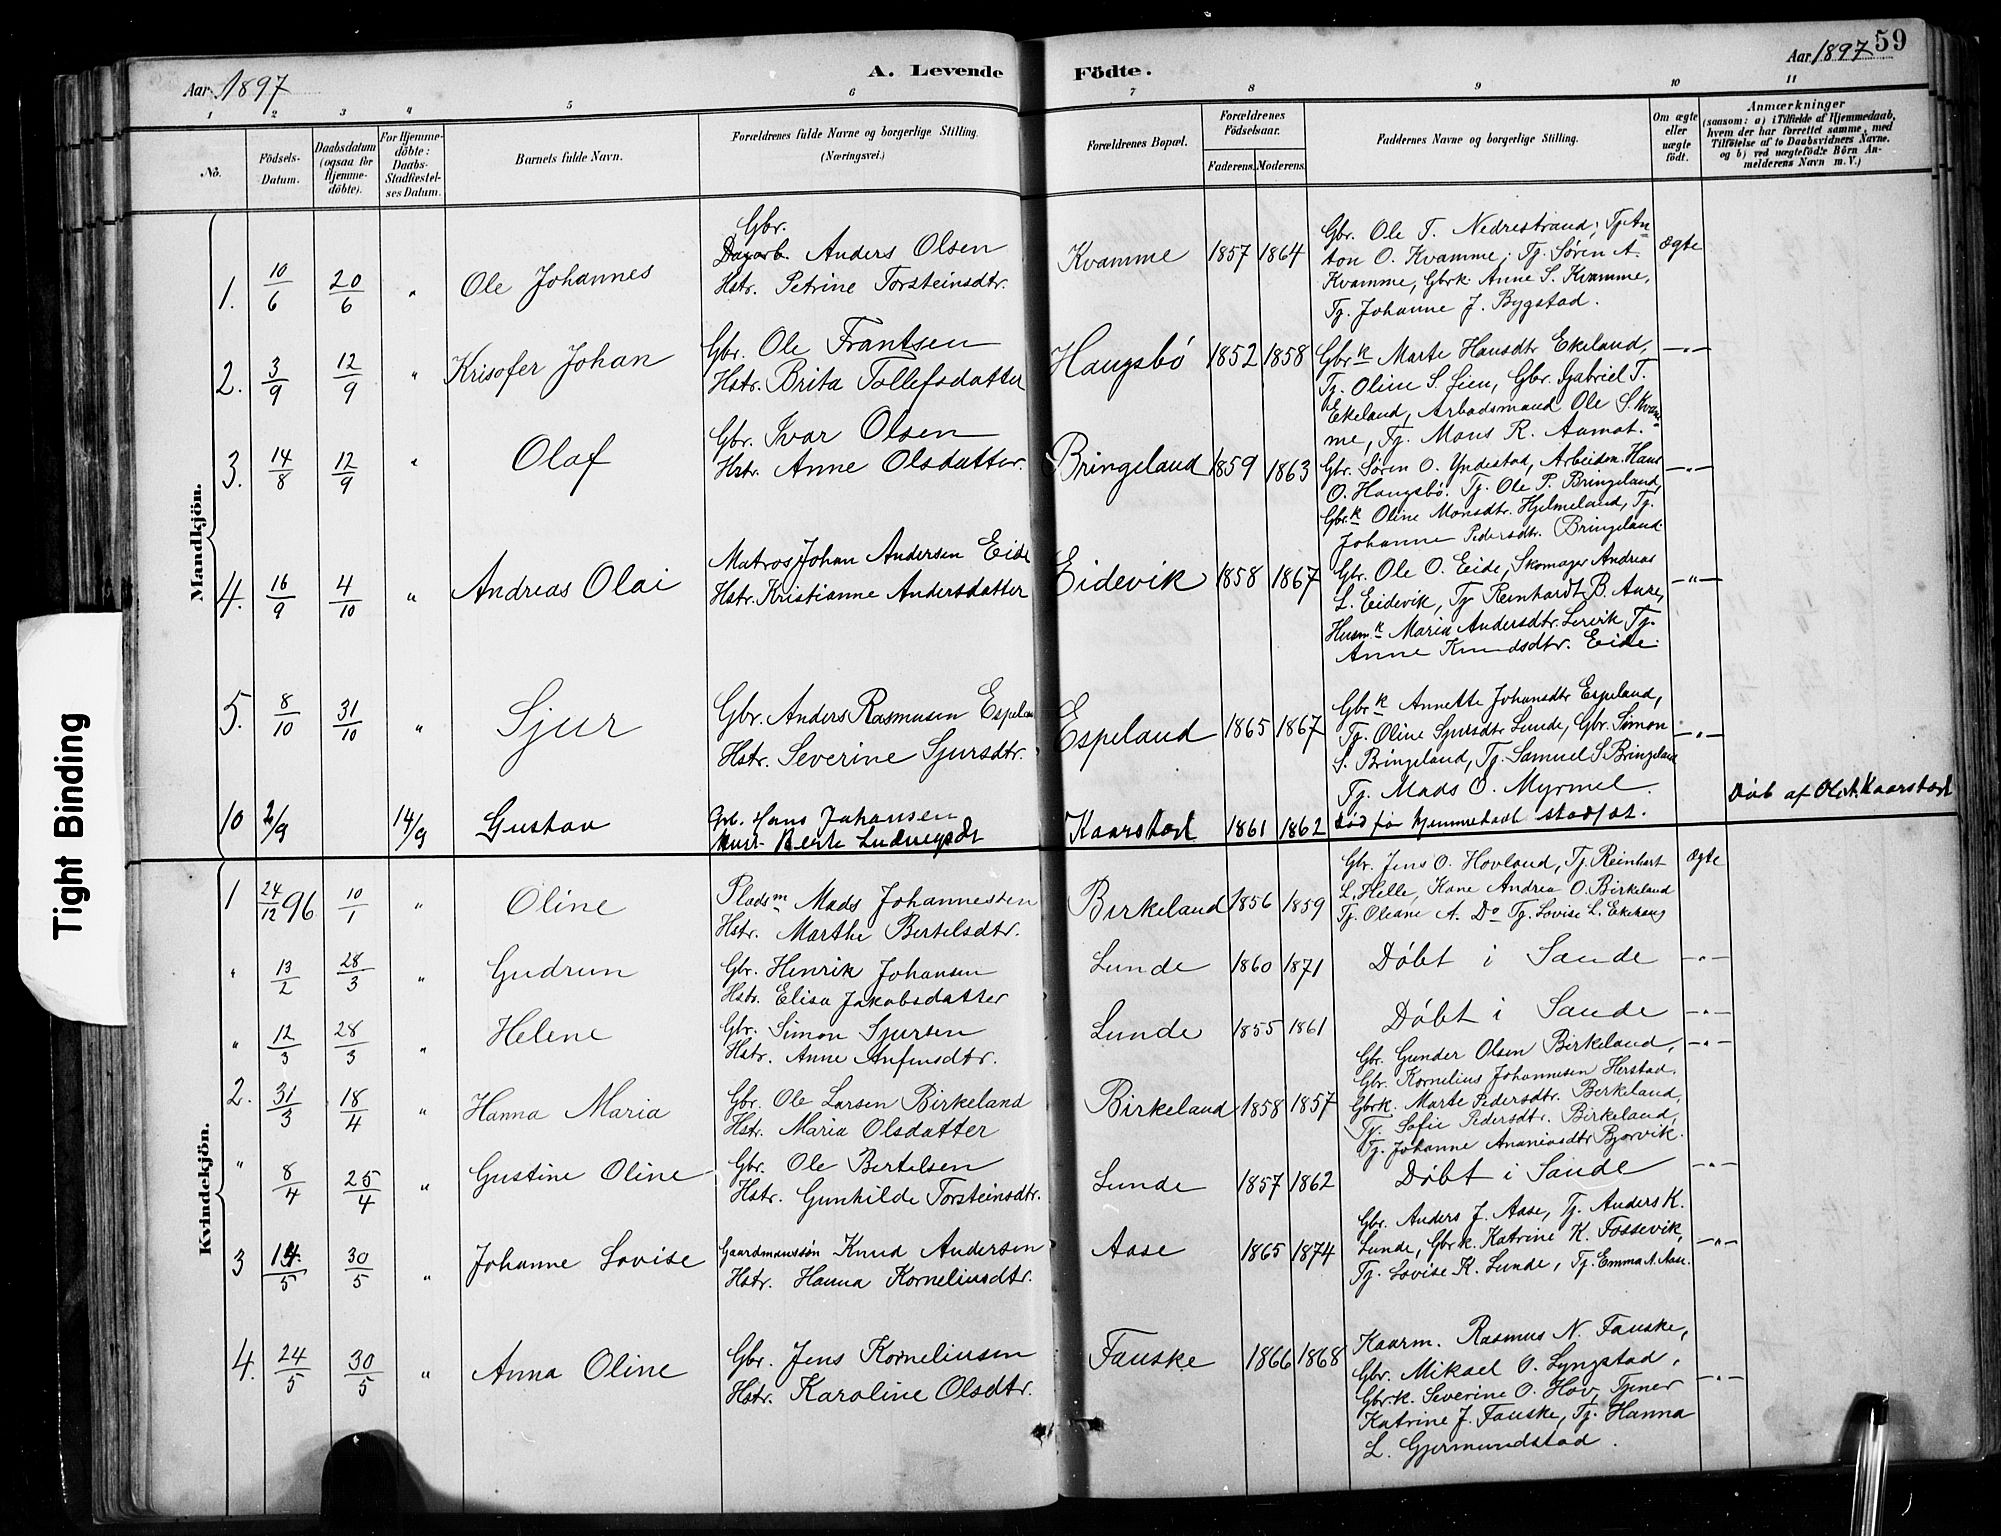 Tight Binding
Aar 1897
A. Levende Födte.
Aar 1897
59
1 2 3 4 5 6 7 8 9 10 11
No.
Födsels-Datum.
Daabsdatum (ogsaa for Hjemme-döbte).
For Hjemme-döbte: Daabs-Stadfæstel-ses Datum.
Barnets fulde Navn.
Forældrenes fulde Navne og borgerlige Stilling.
(Næringsvei.)
Forældrenes Bopæl.
Forældrenes Födselsaar.
Faderens. Moderens.
Faddernes Navne og borgerlige Stilling.
Om ægte eller uægte födt.
Anmærkninger
(saasom: a) i Tilfælde af Hjemmedaab,
hvem der har forrettet samme, med
Tilföielse af to Daabsvidners Navne.
og b) ved uægtefödte Börn An-
melderens Navn m. V.)
Mandkjön.
1. 10/6 20/6 " Ole Johannes
Gbr.
Dagarb. Anders Olsen
Hstr. Petrine Torsteinsdtr.
Kvamme 1857 1864
Gbr. Ole T. Nedrestrand; Tj. An-
ton O. Kvamme; Tj. Søren A.
Kvamme, Gbrk. Anne S. Kvamme,
Tj. Johanne J. Bygstad.
Ægte
2. 3/9 12/9 " Krisofer Johan
Gbr. Ole Frantsen
Hstr. Brita Tollefsdatter
Haugsbö 1852 1858
Gbrk Marte Hansdtr Ekeland,
Tj. Oline S. Lien, Gbr. Gabriel T.
Ekeland, Arbadsmand Ole S. Kvam-
me, Tj. Mons R. Aamot.
-"-
3. 14/8 12/9 " Olaf
Gbr. Ivar Olsen
Hstr. Anne Olsdatter.
Bringeland 1859 1863
Gbr. Søren O. Yndestad, Arbeidm. Hans
O. Haugsbö. Tj. Ole P. Bringeland,
Gbrk Oline Monsdtr. Hjelmeland, Tj.
Johanne Pedersdtr. Bringeland
-"-
4. 16/9 4/10 " Andreas Olai
Matros Johan Andersen Eide
Hstr. Kristianne Andersdatter
Eidevik 1858 1867
Gbr. Ole O. Eide, Skomager Andreas
L. Eidevik, Tj Reinhardt B. Aase,
Husm.k Maria Andersdtr. Lervik Tj.
Anne Knudsdtr. Eide.
-"-
5. 8/10 31/10 " Sjur
Gbr. Anders Rasmusen Espelan
Hstr. Severine Sjursdtr.
Espeland 1865 1867
Gbrk Annette Johansdtr Espeland,
Tj. Oline Sjursdtr Lunde, Gbr. Simon
S. Bringeland, Tj. Samuel S. Bringeland
Tj. Mads O. Myrmel.
-"-
10 2/9 14/9 Gustav
Gbr. Hans Johansen
Hust. Berte Ludvigsdt
Kaarstad 1861 1862
Död før hjemmedaab stadfæt.
Döb af Ole A. Kaarstad
Kvindekjön.
1 24/12 96 10/1 " Oline
Pladsm Mads Johannessen
Hstr. Marthe Bertelsdtr.
Birkeland 1856 1859
Gbr. Jens O. Hovland, Tj. Reinhart
L. Helle, Kone Andrea O. Birkeland
Tj. Oleane A. Do Tj. Lovise L. Ekehaug
Ægte
" 13/2 28/3 " Gudrun
Gbr. Henrik Johansen
Hstr. Elisa Jakobsdatter
Lunde 1860 1871
Døbt i Sande
-"-
" 12/3 28/3 " Helene
Gbr. Simon Sjursen
Hstr. Anne Anfinsdtr.
Lunde 1855 1861
Døbt i Sande
-"-
2. 31/3 18/4 " Hanna Maria
Gbr. Ole Larsen Birkeland
Hstr. Maria Olsdatter
Birkeland 1858 1857
Gbr. Gunder Olsen Birkeland,
Gbr. Kornelius Johannesen Herstad.
Gbrk. Marte Pedersdtr. Berkeland,
Tj. Sofie Pedersdtr. Birkeland,
Tj. Johanne Ananiasdtr Bjorvik.
-"-
" 8/4 25/4 " Gustine Oline
Gbr. Ole Bertelsen
Hstr. Gunhilde Torsteinsdtr.
Lunde 1857 1862
Døbt i Sande
-"-
3 14/5 30/5 " Johanne Lovise
Gaardmanssön Knud Andersen
Hstr. Hanna Korneliusdtr.
Aase 1865 1874
Gbr. Anders J. Aase, Tj. Anders K.
Lunde, Gbrk. Katrine K. Fossevik,
Tj. Lovise K. Lunde, Tj. Emma A. Aase.
-"-
4. 24/5 30/5 " Anna Oline
Gbr. Jens Korneliusen
Hstr. Karoline Olsdtr.
Fauske 1866 1868
Kaarm. Rasmus N. Fauske,
Gbr. Mikael O. Lyngstad,
Gbr.k. Severine O. Hov, Tjener
Katrine J. Fauske, Tj. Hanna
L. Gjermundstad.
-"-